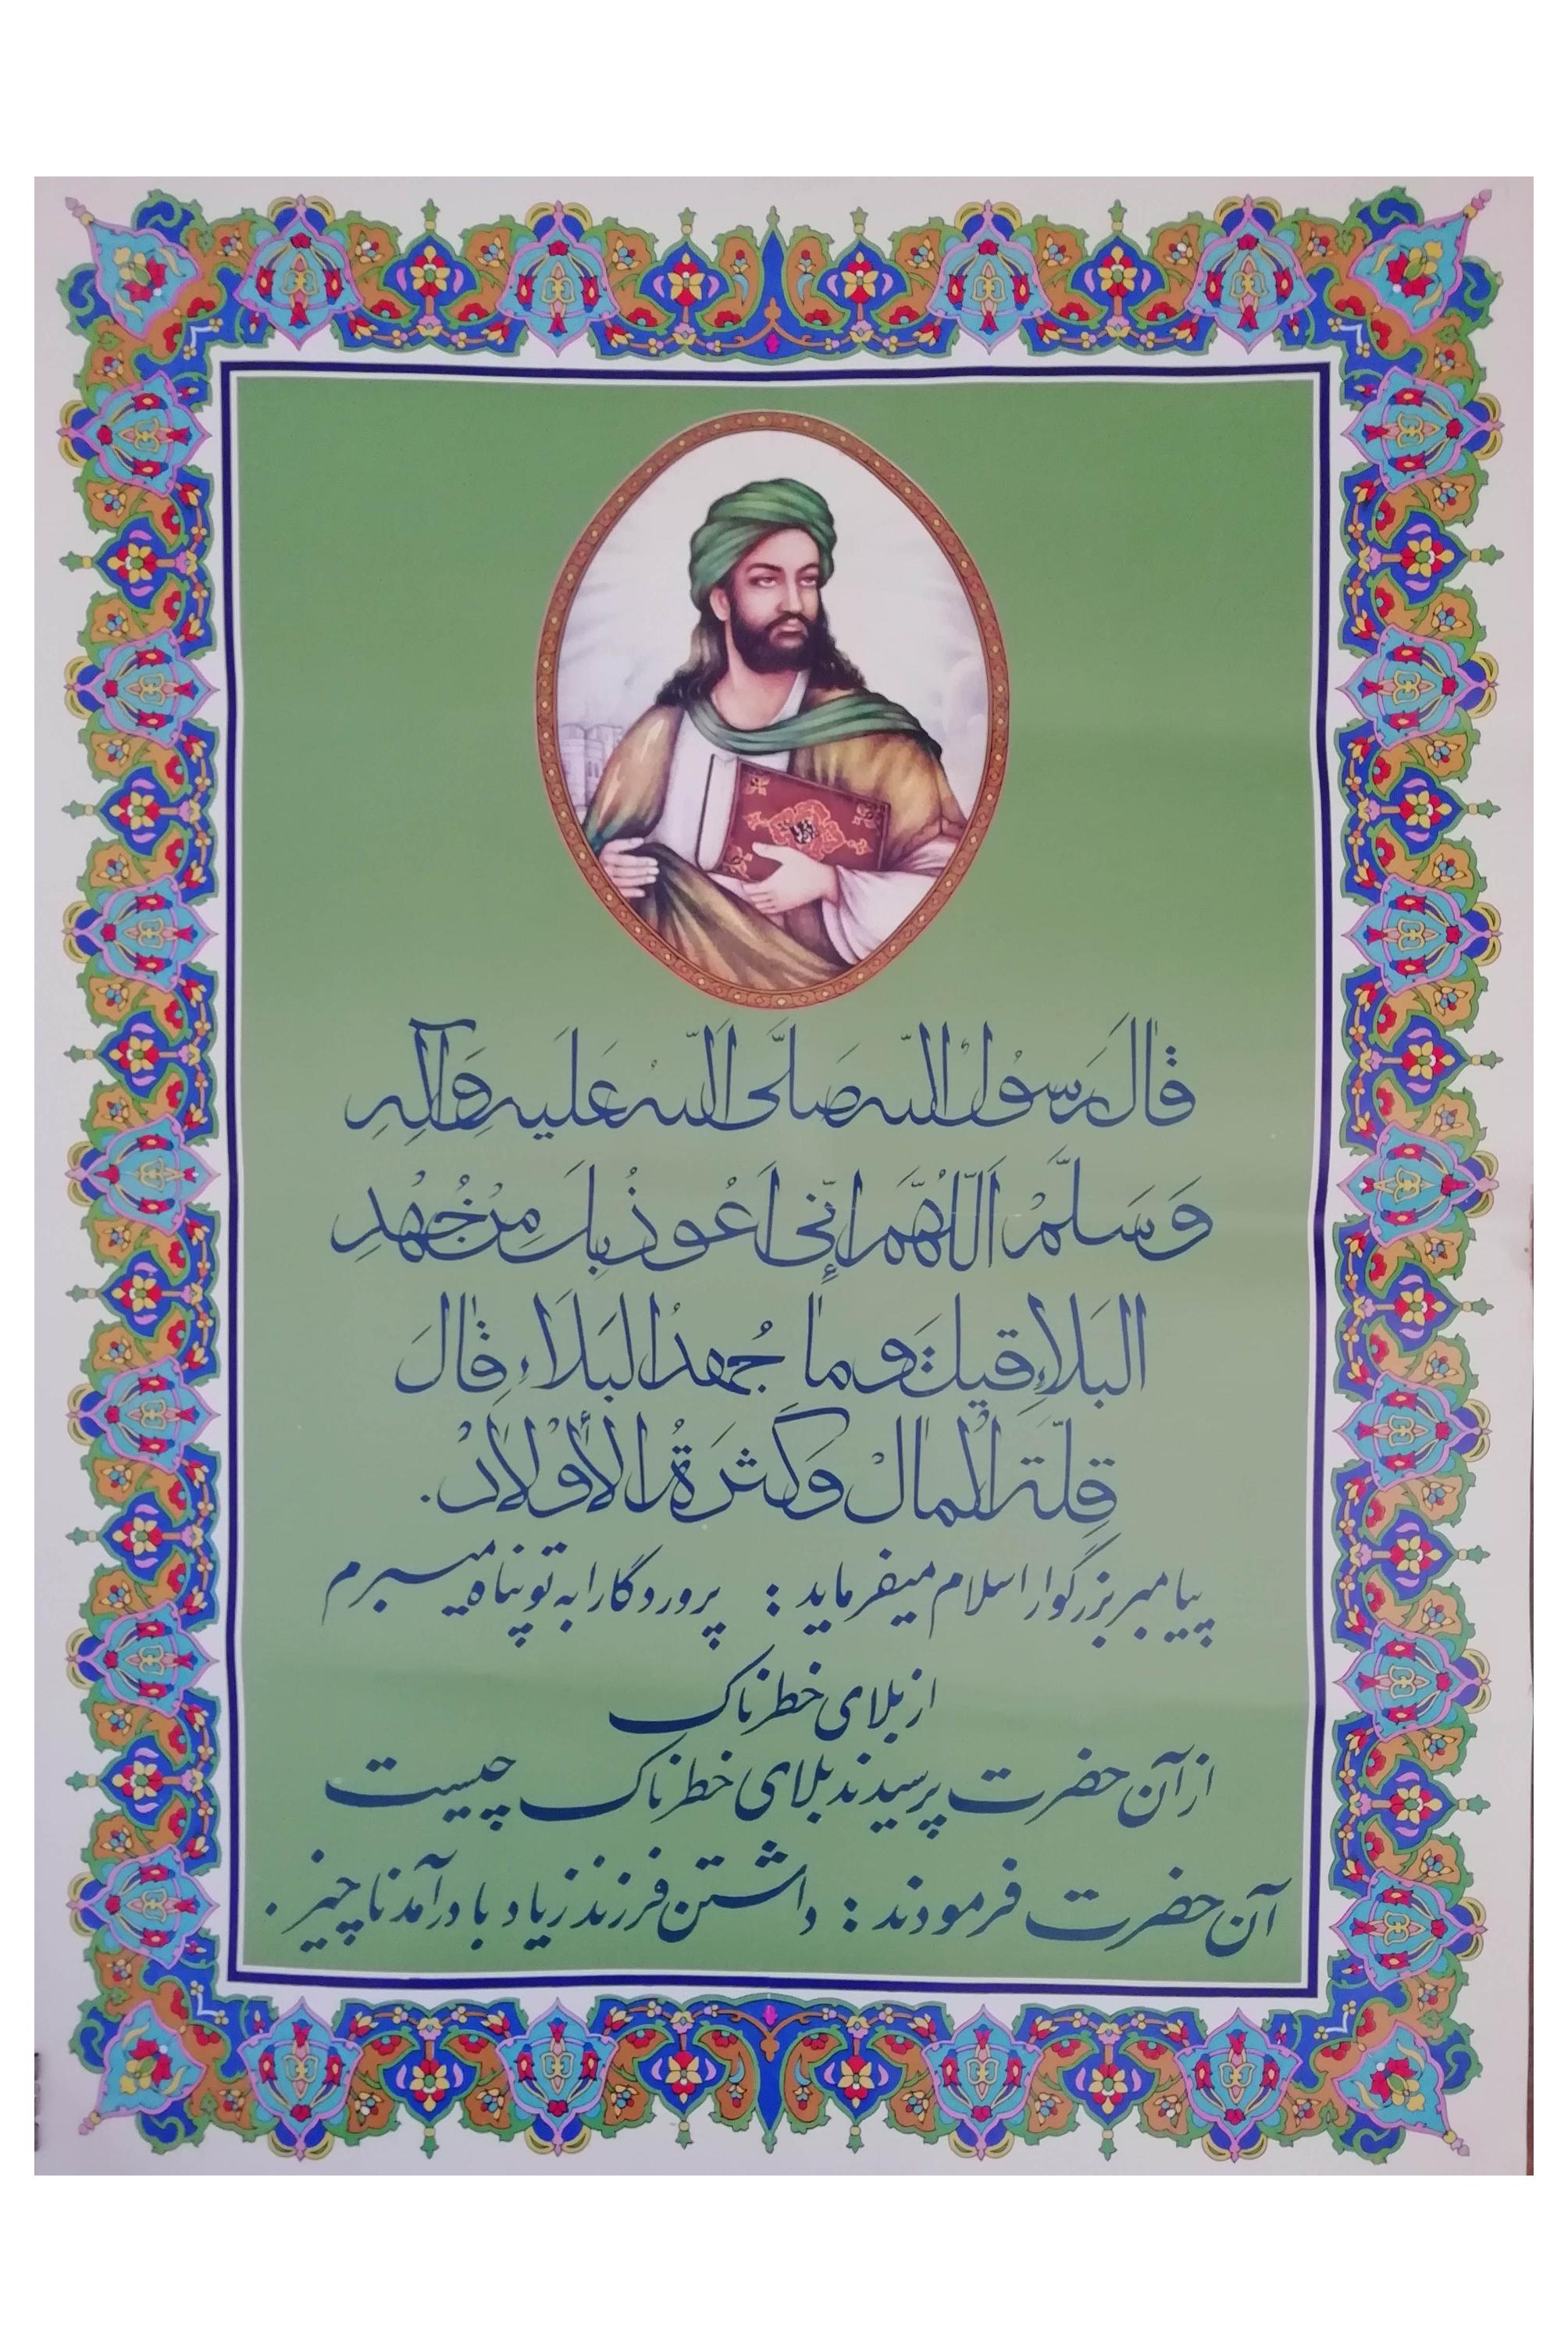 قٰالَ رَسُولُ اللّه صَلَّی اَللّهُ عَلَیهِ وَآلِهِ
وَسَلَّمْ اَللّهُمَّ اِنّی اَعُوذُبِكَ مِنْ جُهْدِ
البَلاءِ قیلَ وَمٰا جُهدُ البَلَاءِ قٰالَ
قِلَّةَ الْمٰالْ وَكَثرَةُ الأَوْلٰادْ.
پیامبر بزرگوار اسلام میفرماید : پروردگارا به تو پناه میبرم
از بلای خطرناک
از آن حضرت پرسیدند بلای خطرناک چیست
آن حضرت فرمودند : داشتن فرزند زیاد با درآمد ناچیز .